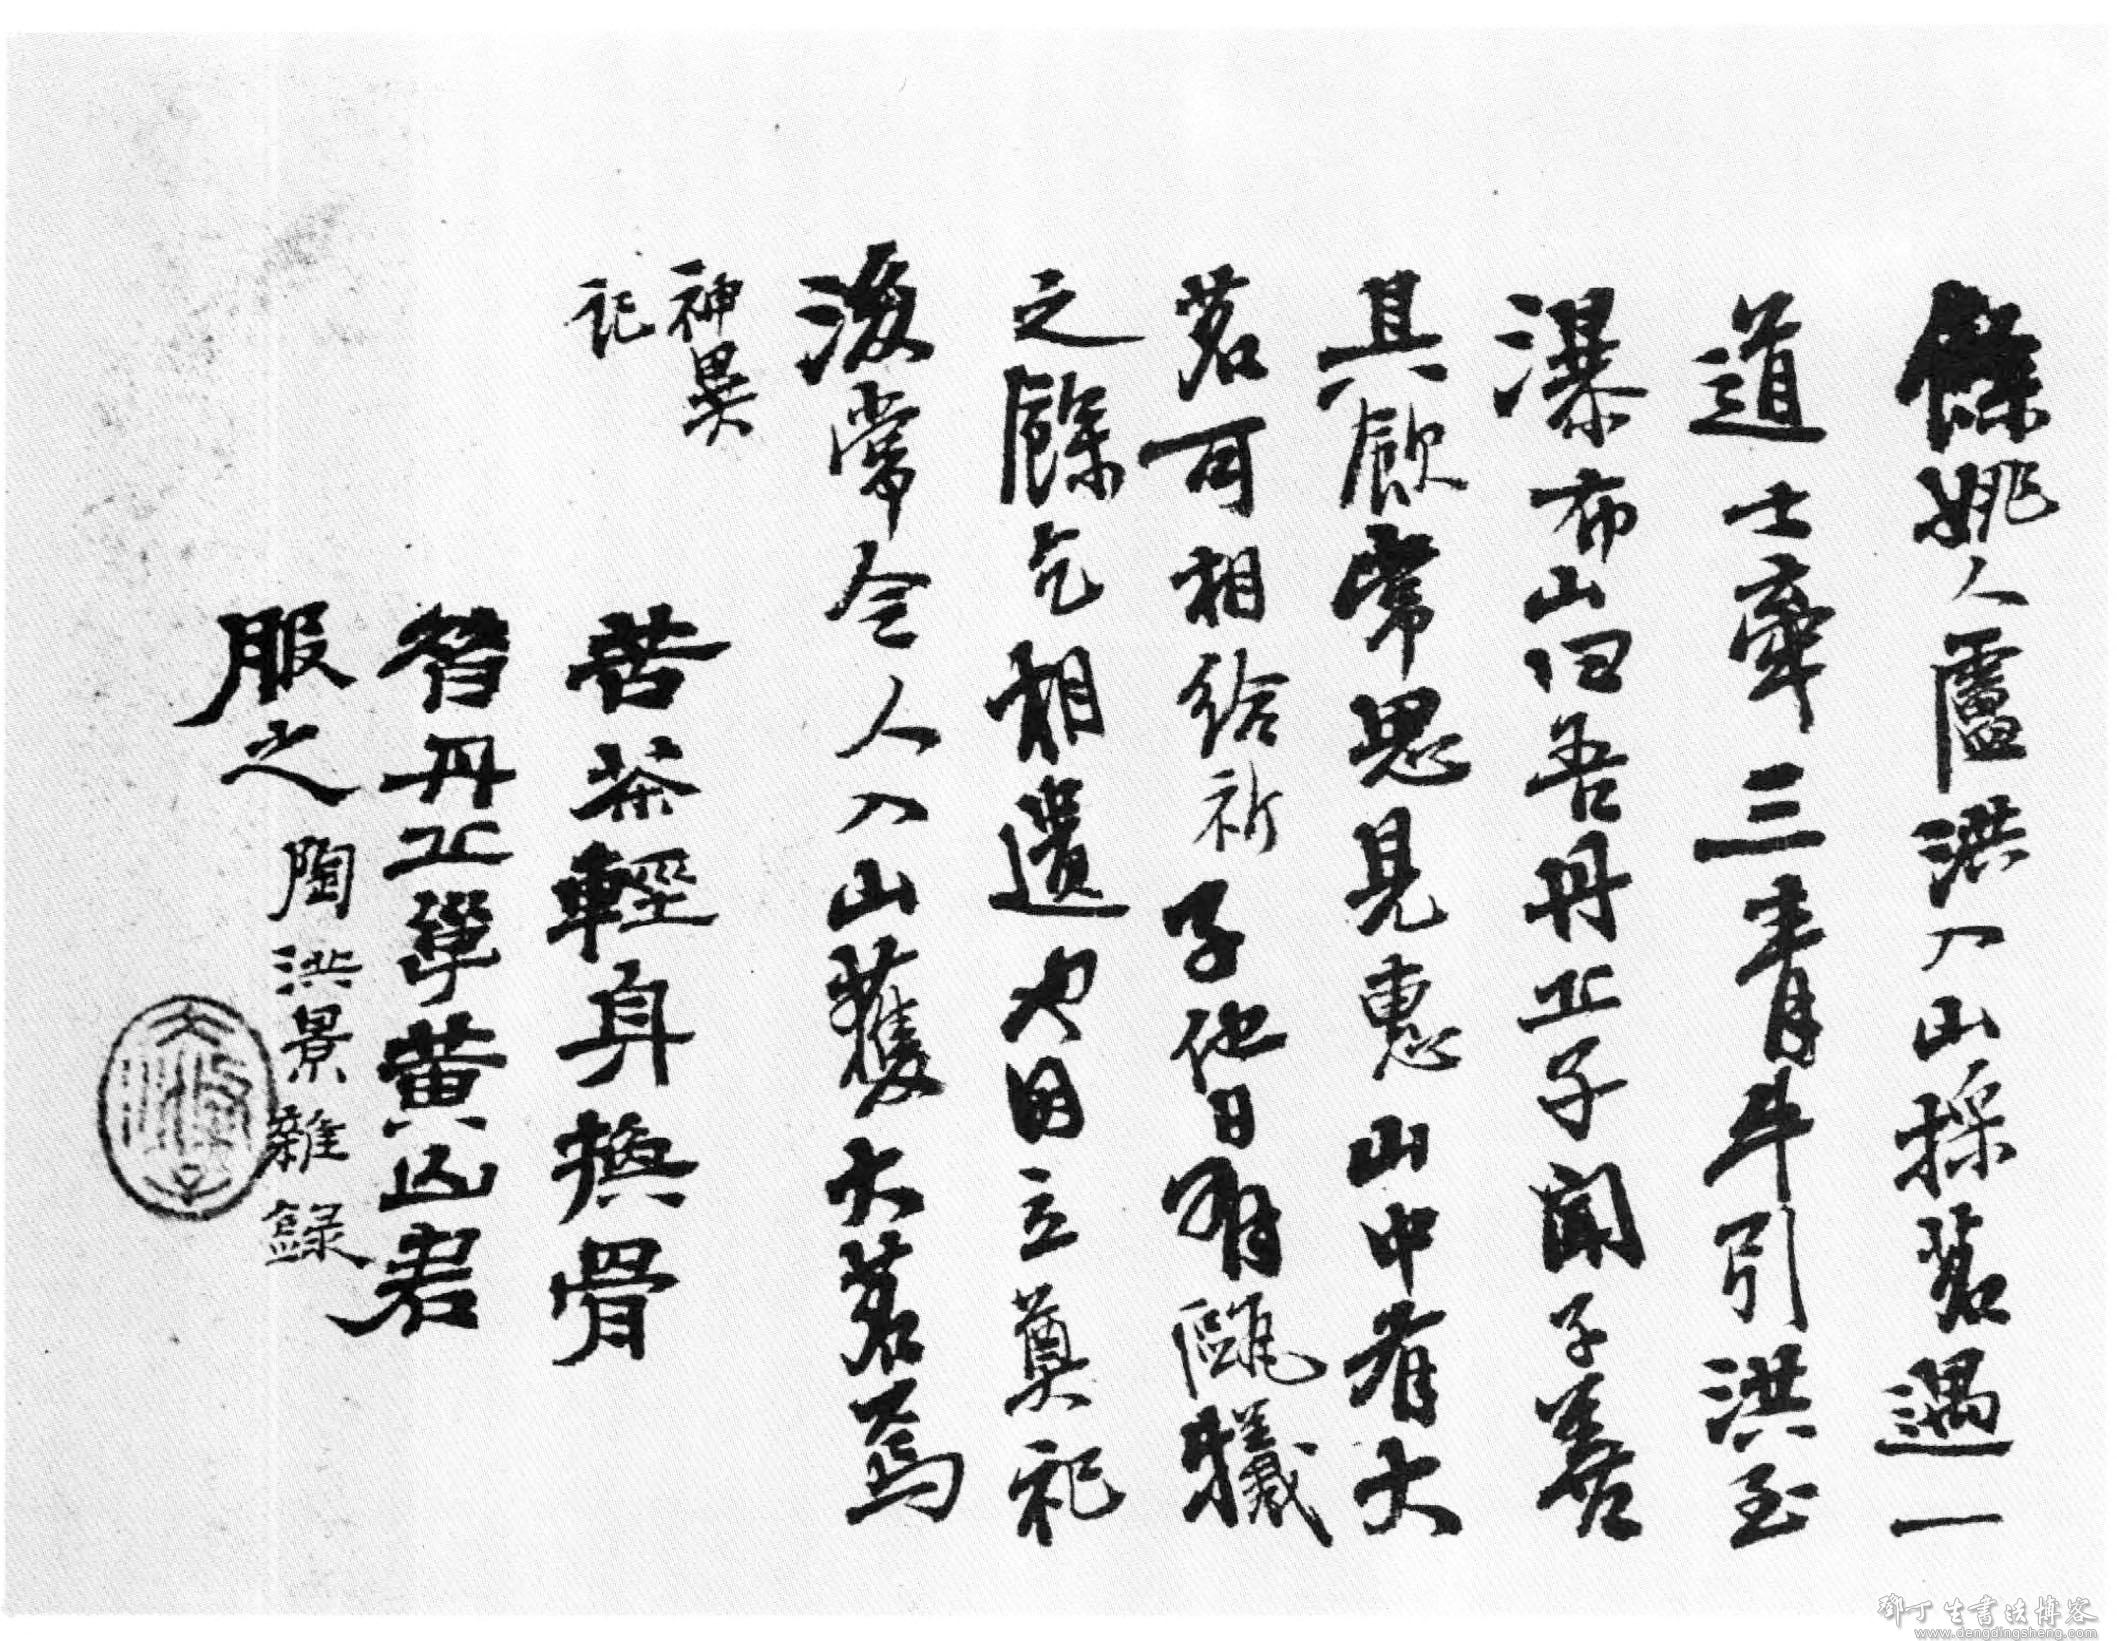 餘姚人虞洪入山採茗遇一
道士牽三青牛引洪至
瀑布山曰吾丹丘子聞子善
具飲常思見惠山中有大
茗可相給祈子他日有甌犧
之餘乞相遺也因立奠祀
後常令人入山獲大茗焉
神異
記
苦茶輕身換骨
昔丹丘單黃山君
服之 陶洪景雜錄
鄧丁生書法博客
www.dengdingsheng.com